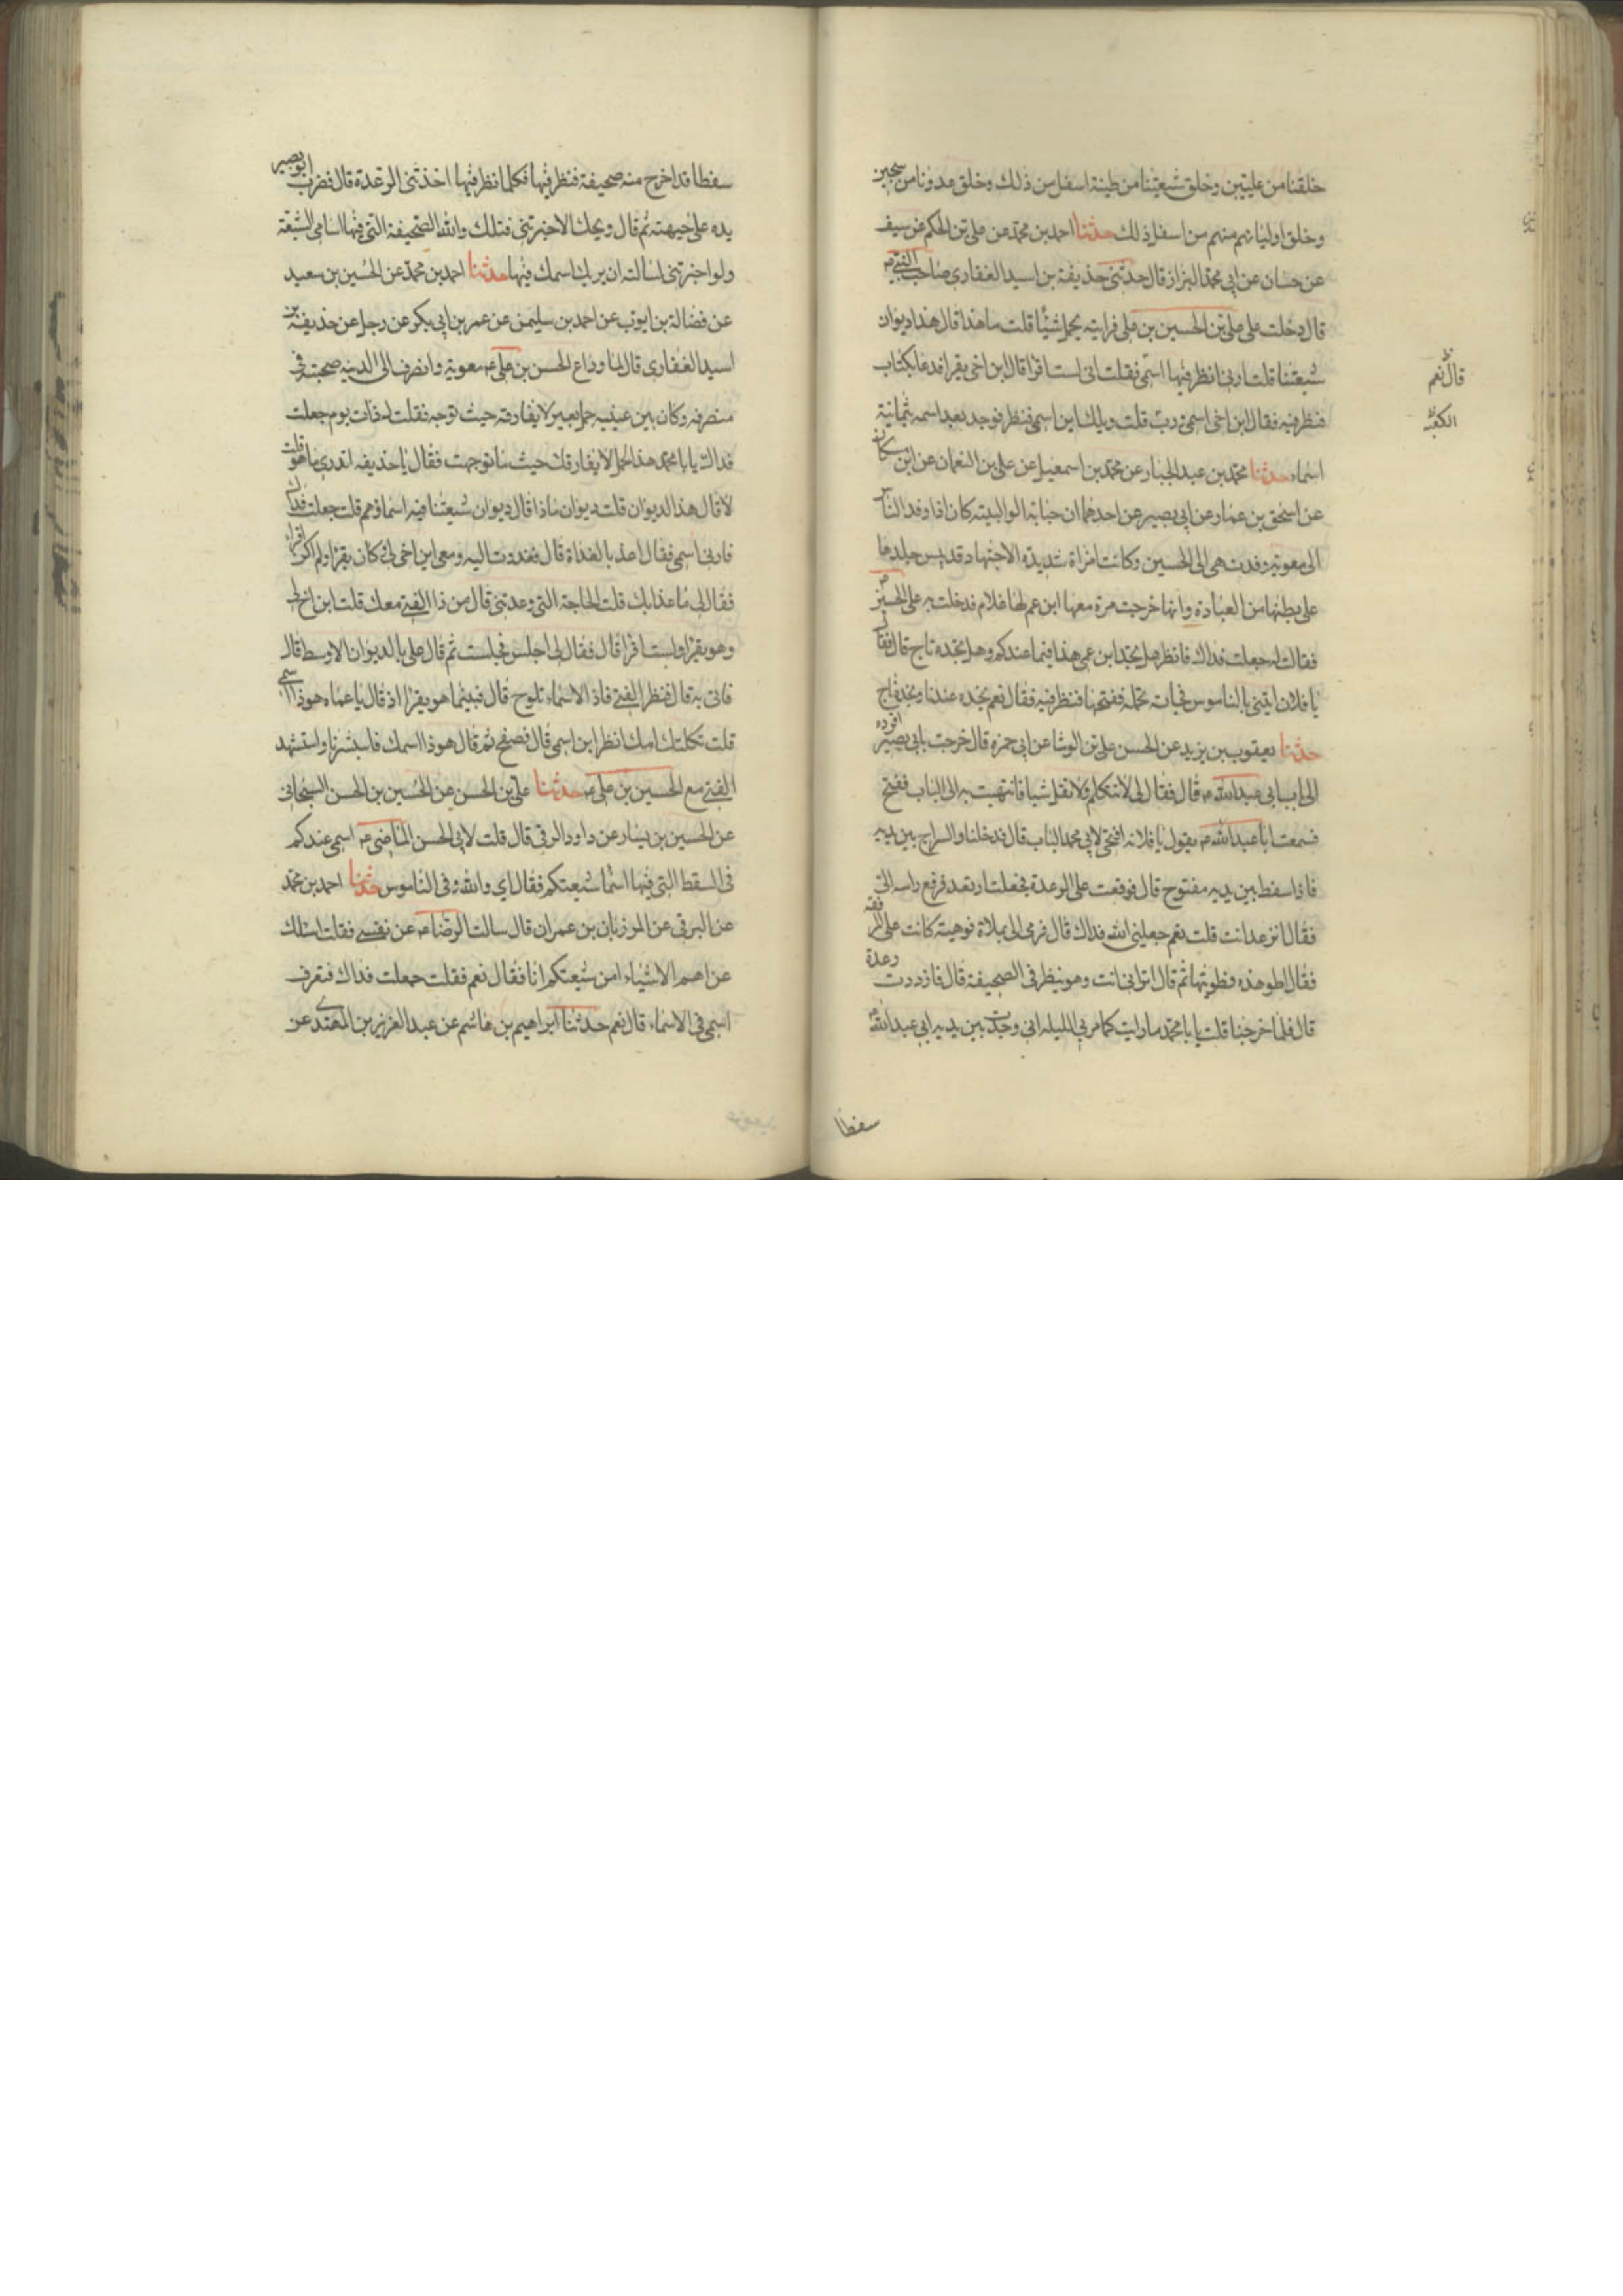 خلقنا من عليين وخلق شيعتنا من طينة اسفل من ذلك وخلق عدونا من سجين
وخلق اوليائهم منهم من اسفل ذلك حدثنا احمد بن محمد عن على بن الحكم عن سيف
عن حسان عن ابى محمد البزاز قال حدثنى حذيفة بن اسيد الغفارى صاحب النبي ص
قال دخلت على على بن الحسين بن على فرايته يحمل شيئا قلت ما هذا قال هذا ديوان
شيعتنا قلت ارنى انظر فيها اسمى فقلت انى لست اقرا قال ابن اخى يقرا فدعا بكتاب
فنظر فيه فقال ابن اخى اسمى ورب قلت ويلك اين اسمى فنظر فوجد بعد اسمه بثمانية
اسماء حدثنا محمد بن عبد الجبار عن محمد بن اسمعيل عن على بن النعمان عن ابن مسكان
عن اسحق بن عمار عن ابى بصير عن احدهما ان حبابة الوالبيته كان اذا وفد الناس
الى معوية وفدت هى الى الحسين وكانت امراة شديدة الاجتهاد قد يبس جلدها
على بطنها من العبادة وانها خرجت مرة معها ابن عم لها غلام فدخلت به على الحسين
فقالت له جعلت فداك فانظر هل تجد ابن عمى هذا فيما عندكم وهل تجده ناج قال فقال
يا فلان ايتينى بالناموس فجاءت تحمله ففتحها فنظر فيه فقال نعم نجده عندنا ونجد ناج
حدثنا يعقوب بن يزيد عن الحسن على بن الوشا عن ابى حمزه قال خرجت بابى بصير اقوده
الى باب ابى عبد الله ع قال فقال لى لا تتكلم ولا تقل شيا فانتهيت به الى الباب ففتح
فسمعت ابا عبد الله ع يقول يا فلانه افتحى لابى محمد الباب قال فدخلنا والسراج بين يديه
فاذا سفط بين يديه مفتوح قال فوقعت على الرعدة فجعلت ارتعد فرفع راسه الى
فقال ابزعد انت قلت نعم جعلنى الله فداك قال فرمى الى بملاة قوهيته كانت على المرفقه
فقال اطو هذه فطويتها ثم قال ابزانى انت وهو ينظر فى الصحيفة قال فازددت رعدة
قال فلما خرجنا قلت يا با محمد ما رايت كما مر بى الليله انى وجدت بين يديه ابى عبد الله ع
قال نعم
سفطا
سفطا قد اخرج منه صحيفة فنظر فيها فكلما نظر فيها اخذتنى الرعدة قال فضرب ابو بصير
يده على جبهته ثم قال ويحك الا اخبرتنى فتلك والله الصحيفة التى فيها اسامى الشيعة
ولو اخبرتنى لسالته ان يريك اسمك فيها حدثنا احمد بن محمد عن الحسين بن سعيد
عن فضالة بن ايوب عن احمد بن سليمن عن عمر بن ابى بكر عن رجل عن حذيفة بن
اسيد الغفارى قال لما وداع الحسن بن على ع معوية وانصرف الى المدينه صحبته فى
منصرفه وكان بين عينيه حمل بعير لا يفارقه حيث توجه فقلت له ذات يوم جعلت
فداك يا با محمد هذا الحمل لا يفارقك حيث ما توجهت فقال يا حذيفه اتدرى ما هو قلت
لا قال هذا الديوان قلت ديوان ماذا قال ديوان شيعتنا فيه اسماؤهم قلت جعلت فداك
فارنى اسمى فقال اغد بالغداة قال فغدوت اليه ومعى ابن اخى لى كان يقرا ولم اكن اقراء
فقال لى ما غدا بك قلت الحاجة التى وعدتنى قال من ذا الفتى معك قلت ابن اخ لى
وهو يقرا ولست اقرا قال فقال لى اجلس فجلست ثم قال على بالديوان الاوسط قال
فاتى به قال فنظر الفتى فاذا الاسماء تلوح قال فبينما هو يقرا اذ قال يا عماه هوذا اسمى
قلت ثكلتك امك انظر اين اسمى قال فصفح ثم قال هوذا اسمك فاستبشرنا واستشهد
الفتى مع الحسين بن على ع حدثنا على بن الحسن عن الحسين بن الحسن السنجانى
عن الحسين بن يسار عن داود الرقى قال قلت لابى الحسن الماضى ع اسمى عندكم
فى السقط التى فيها اسما شيعتكم فقال اى والله وفى الناموس حدثنا احمد بن محمد
عن البرقى عن المرزبان بن عمران قال سالت الرضا ع عن نفسى فقلت اسئلك
عن اهم الاشياء امن شيعتكم انا فقال نعم فقلت جعلت فداك فتعرف
اسمى فى الاسماء قال نعم حدثنا ابراهيم بن هاشم عن عبد العزيز بن المهتدى عن